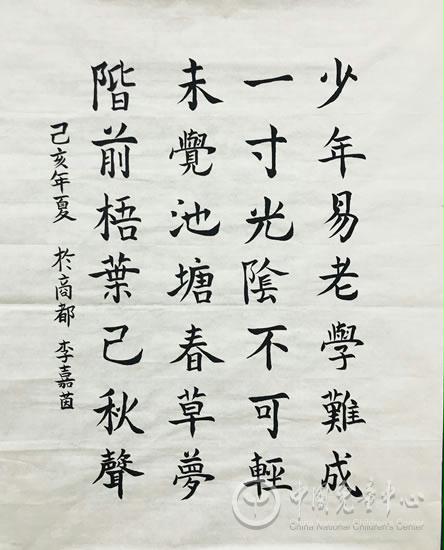 少年易老學難成
一寸光陰不可輕
未覺池塘春草夢
階前梧葉己秋聲
己亥年夏 於商都 李嘉茵
中国儿童中心
China National Children's Center